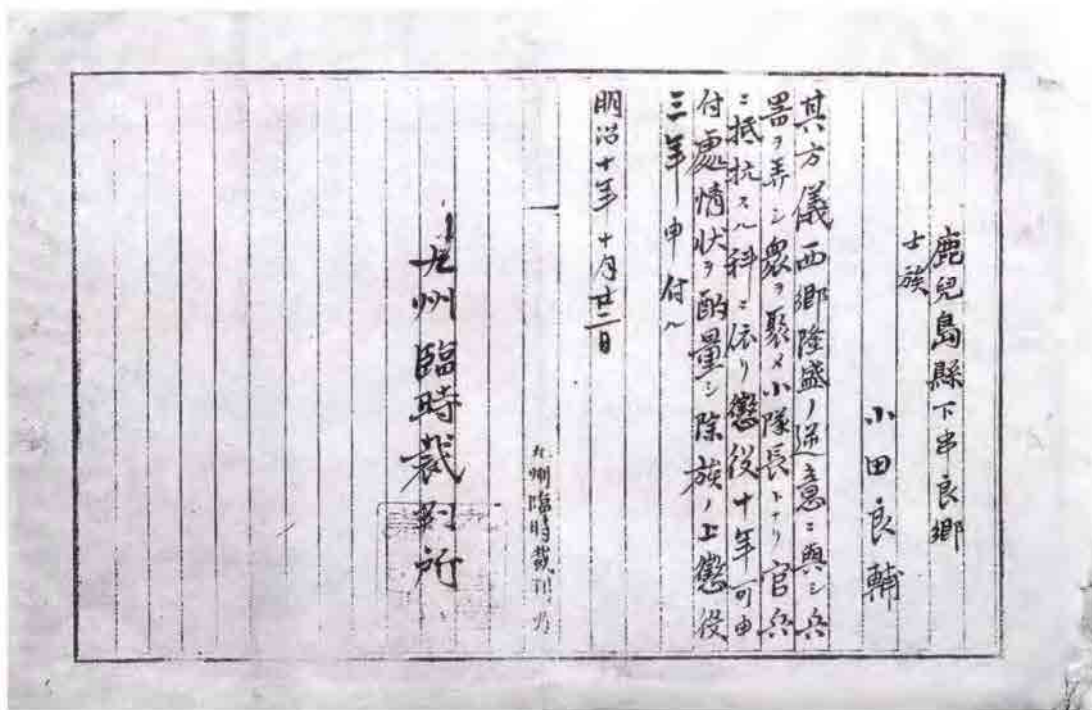 鹿兒島縣下串良郷
士族
小田良輔
其方儀西郷隆盛ノ逆意ニ與シ兵
器ヲ弄シ衆ヲ聚メ小隊長トナリ官兵
ニ抵抗スル科ニ依リ懲役十年可申
付處情状ヲ酌量シ除族ノ上懲役
三年申付ル
明治十年十月廿二日
九州臨時裁判所
九州臨時裁判所